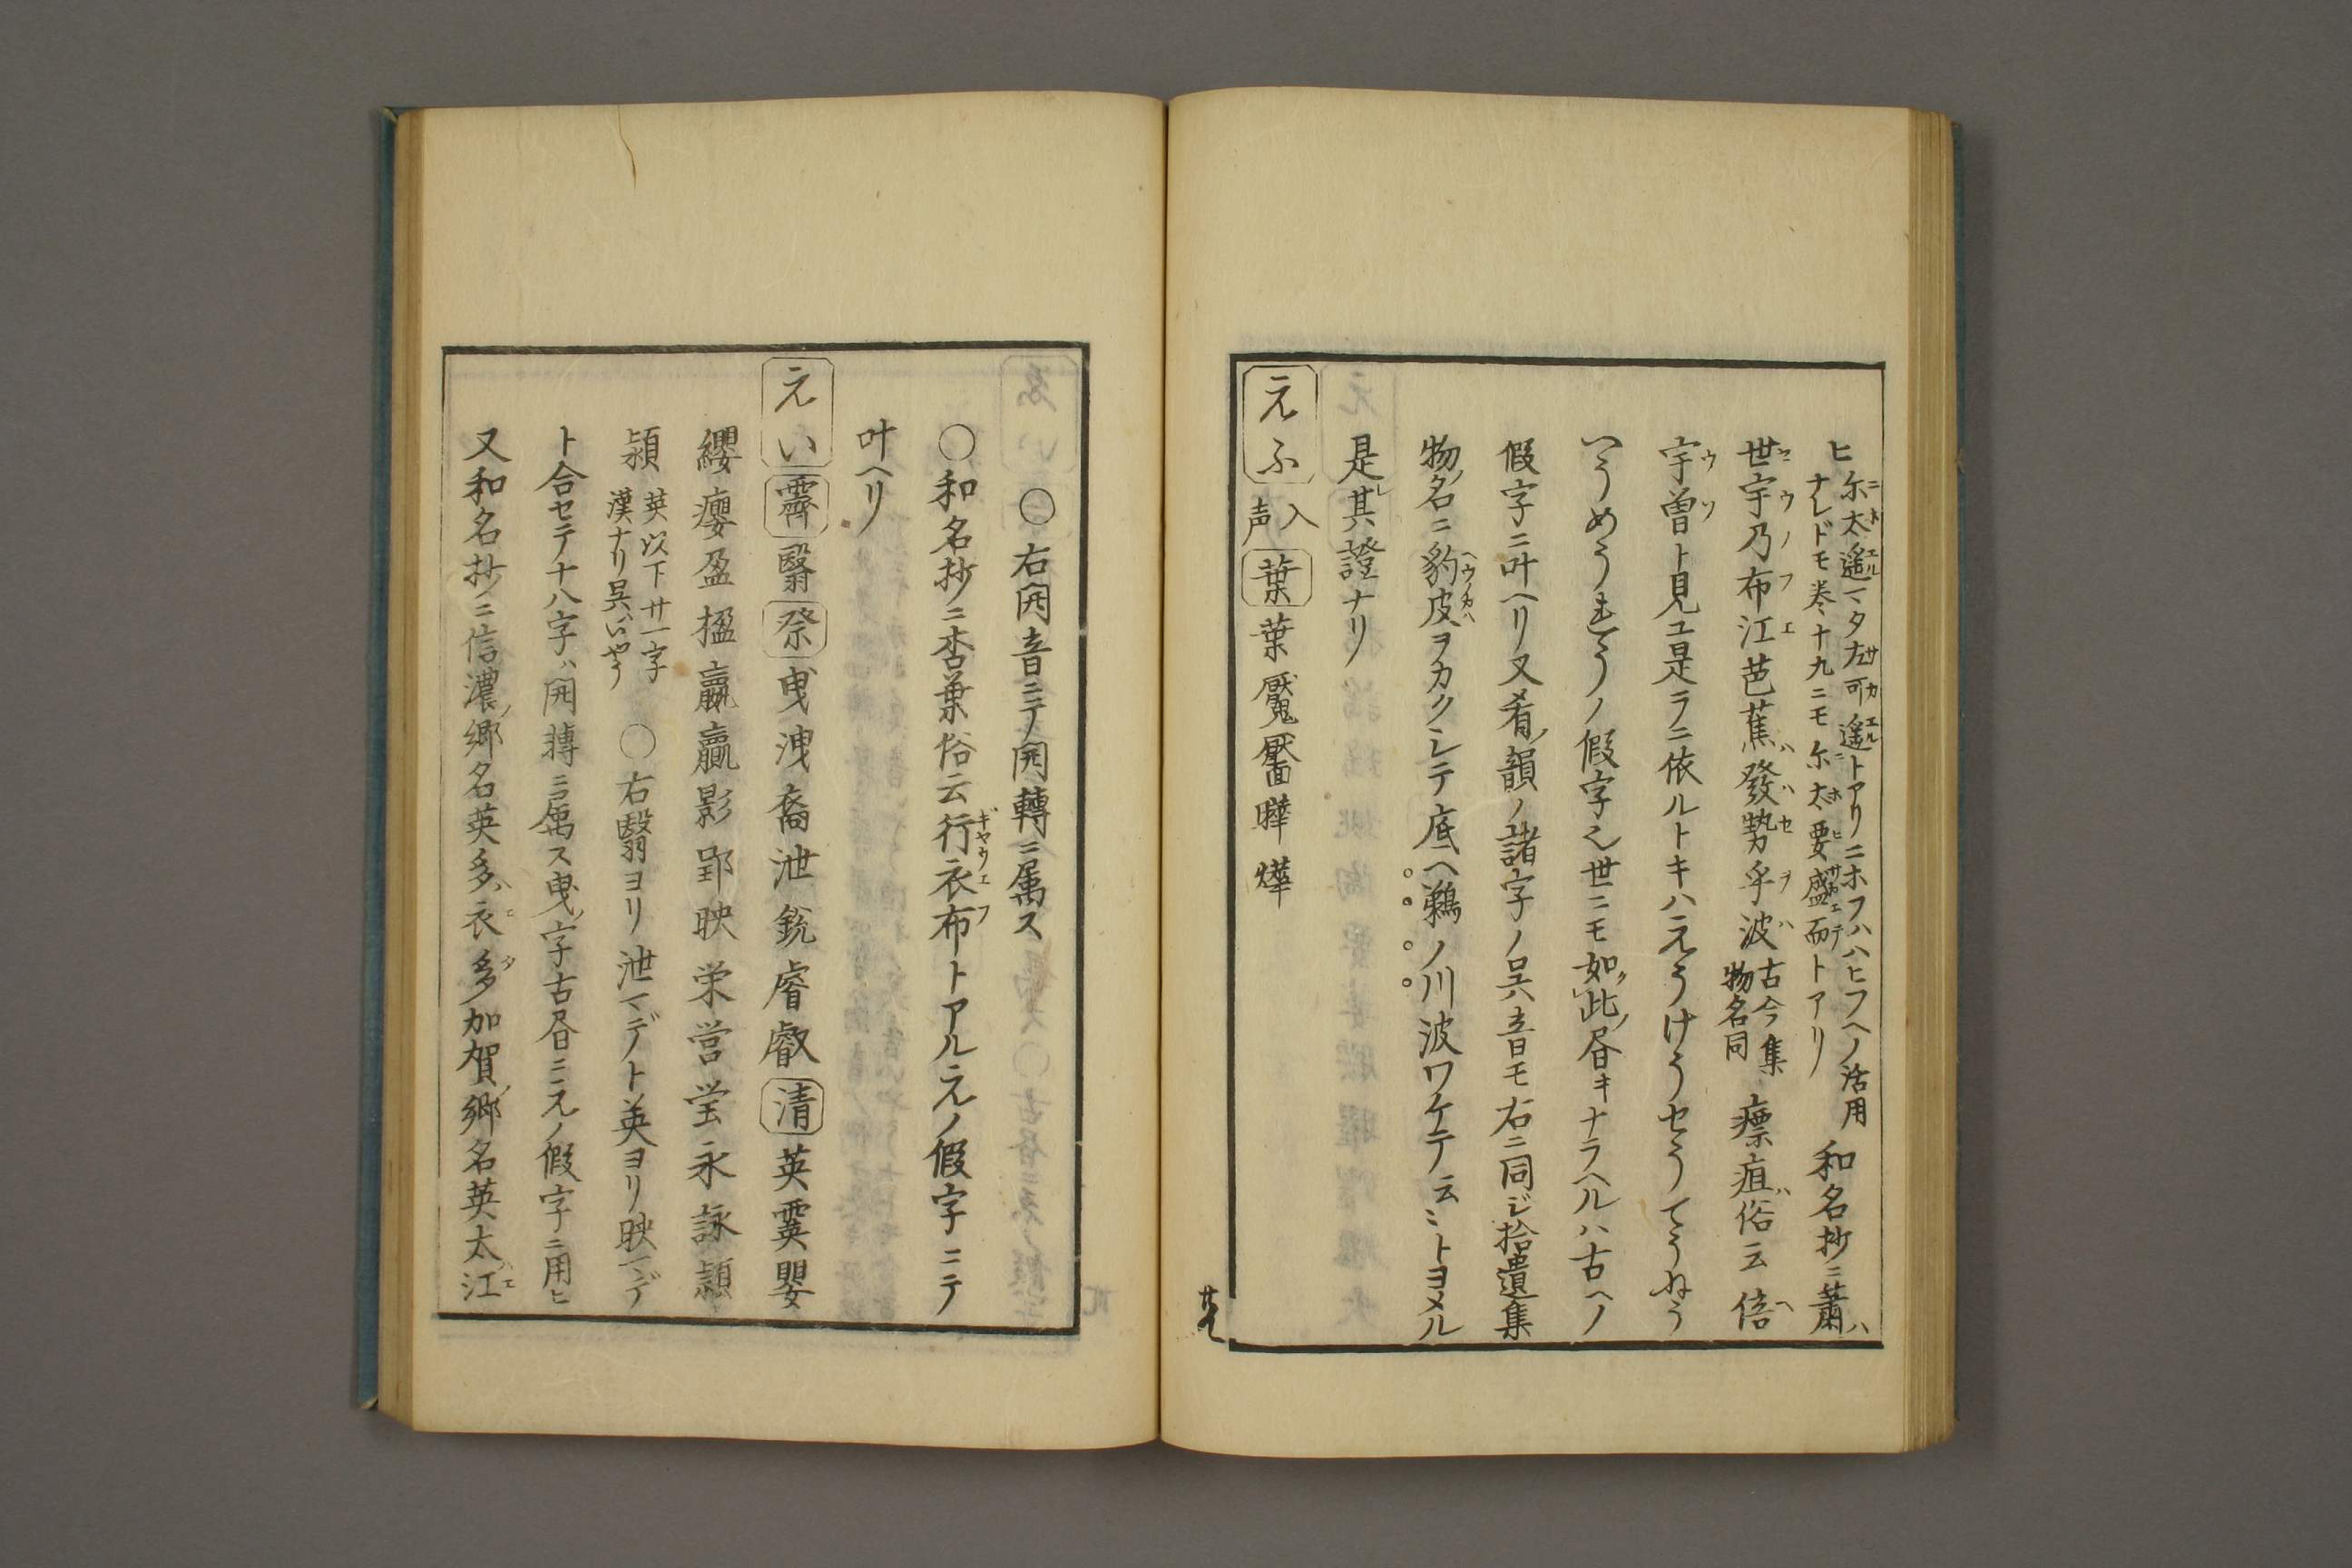 ヒ 尓太遥マタ左可遥トアリニホフハハヒフヘノ活用
ナレドモ巻十九ニモ尓太要盛而トアリ 和名抄ニ蕭
世宇乃布江芭蕉發勢乎波 古今集物名同 瘭疽俗云倍
宇曽ト見ユ是ラニ依ルトキハえうけうセうてうねう
いうめうれうノ假字也世ニモ如此書キナラヘルハ古ヘノ
假字ニ叶ヘリ又肴ノ韻ノ諸字ノ呉音モ右ニ同ジ拾遺集
物ノ名ニ豹皮ヲカクシテ底ヘ鵜ノ川波ワケテ云ミトヨメル
是レ其證ナリ
えふ 入声 葉 葉魘靨曄燁
○右開音ニテ開轉ニ属ス
○和名抄ニ杏葉俗云行衣布トアルえノ假字ニテ
叶ヘリ
えい 霽 翳 祭 曵洩裔泄銳睿叡 清 英霙嬰
纓癭盈楹嬴贏影郢映栄営瑩永詠頴
潁 英以下廿一字漢ナリ呉ハいやう ○右翳ヨリ泄マデト英ヨリ映マデ
ト合セテ十八字ハ開轉ニ属ス曵ノ字古書ニえノ假字ニ用ヒ
又和名抄ニ信濃ノ郷名英多衣多加賀ノ郷名英太江